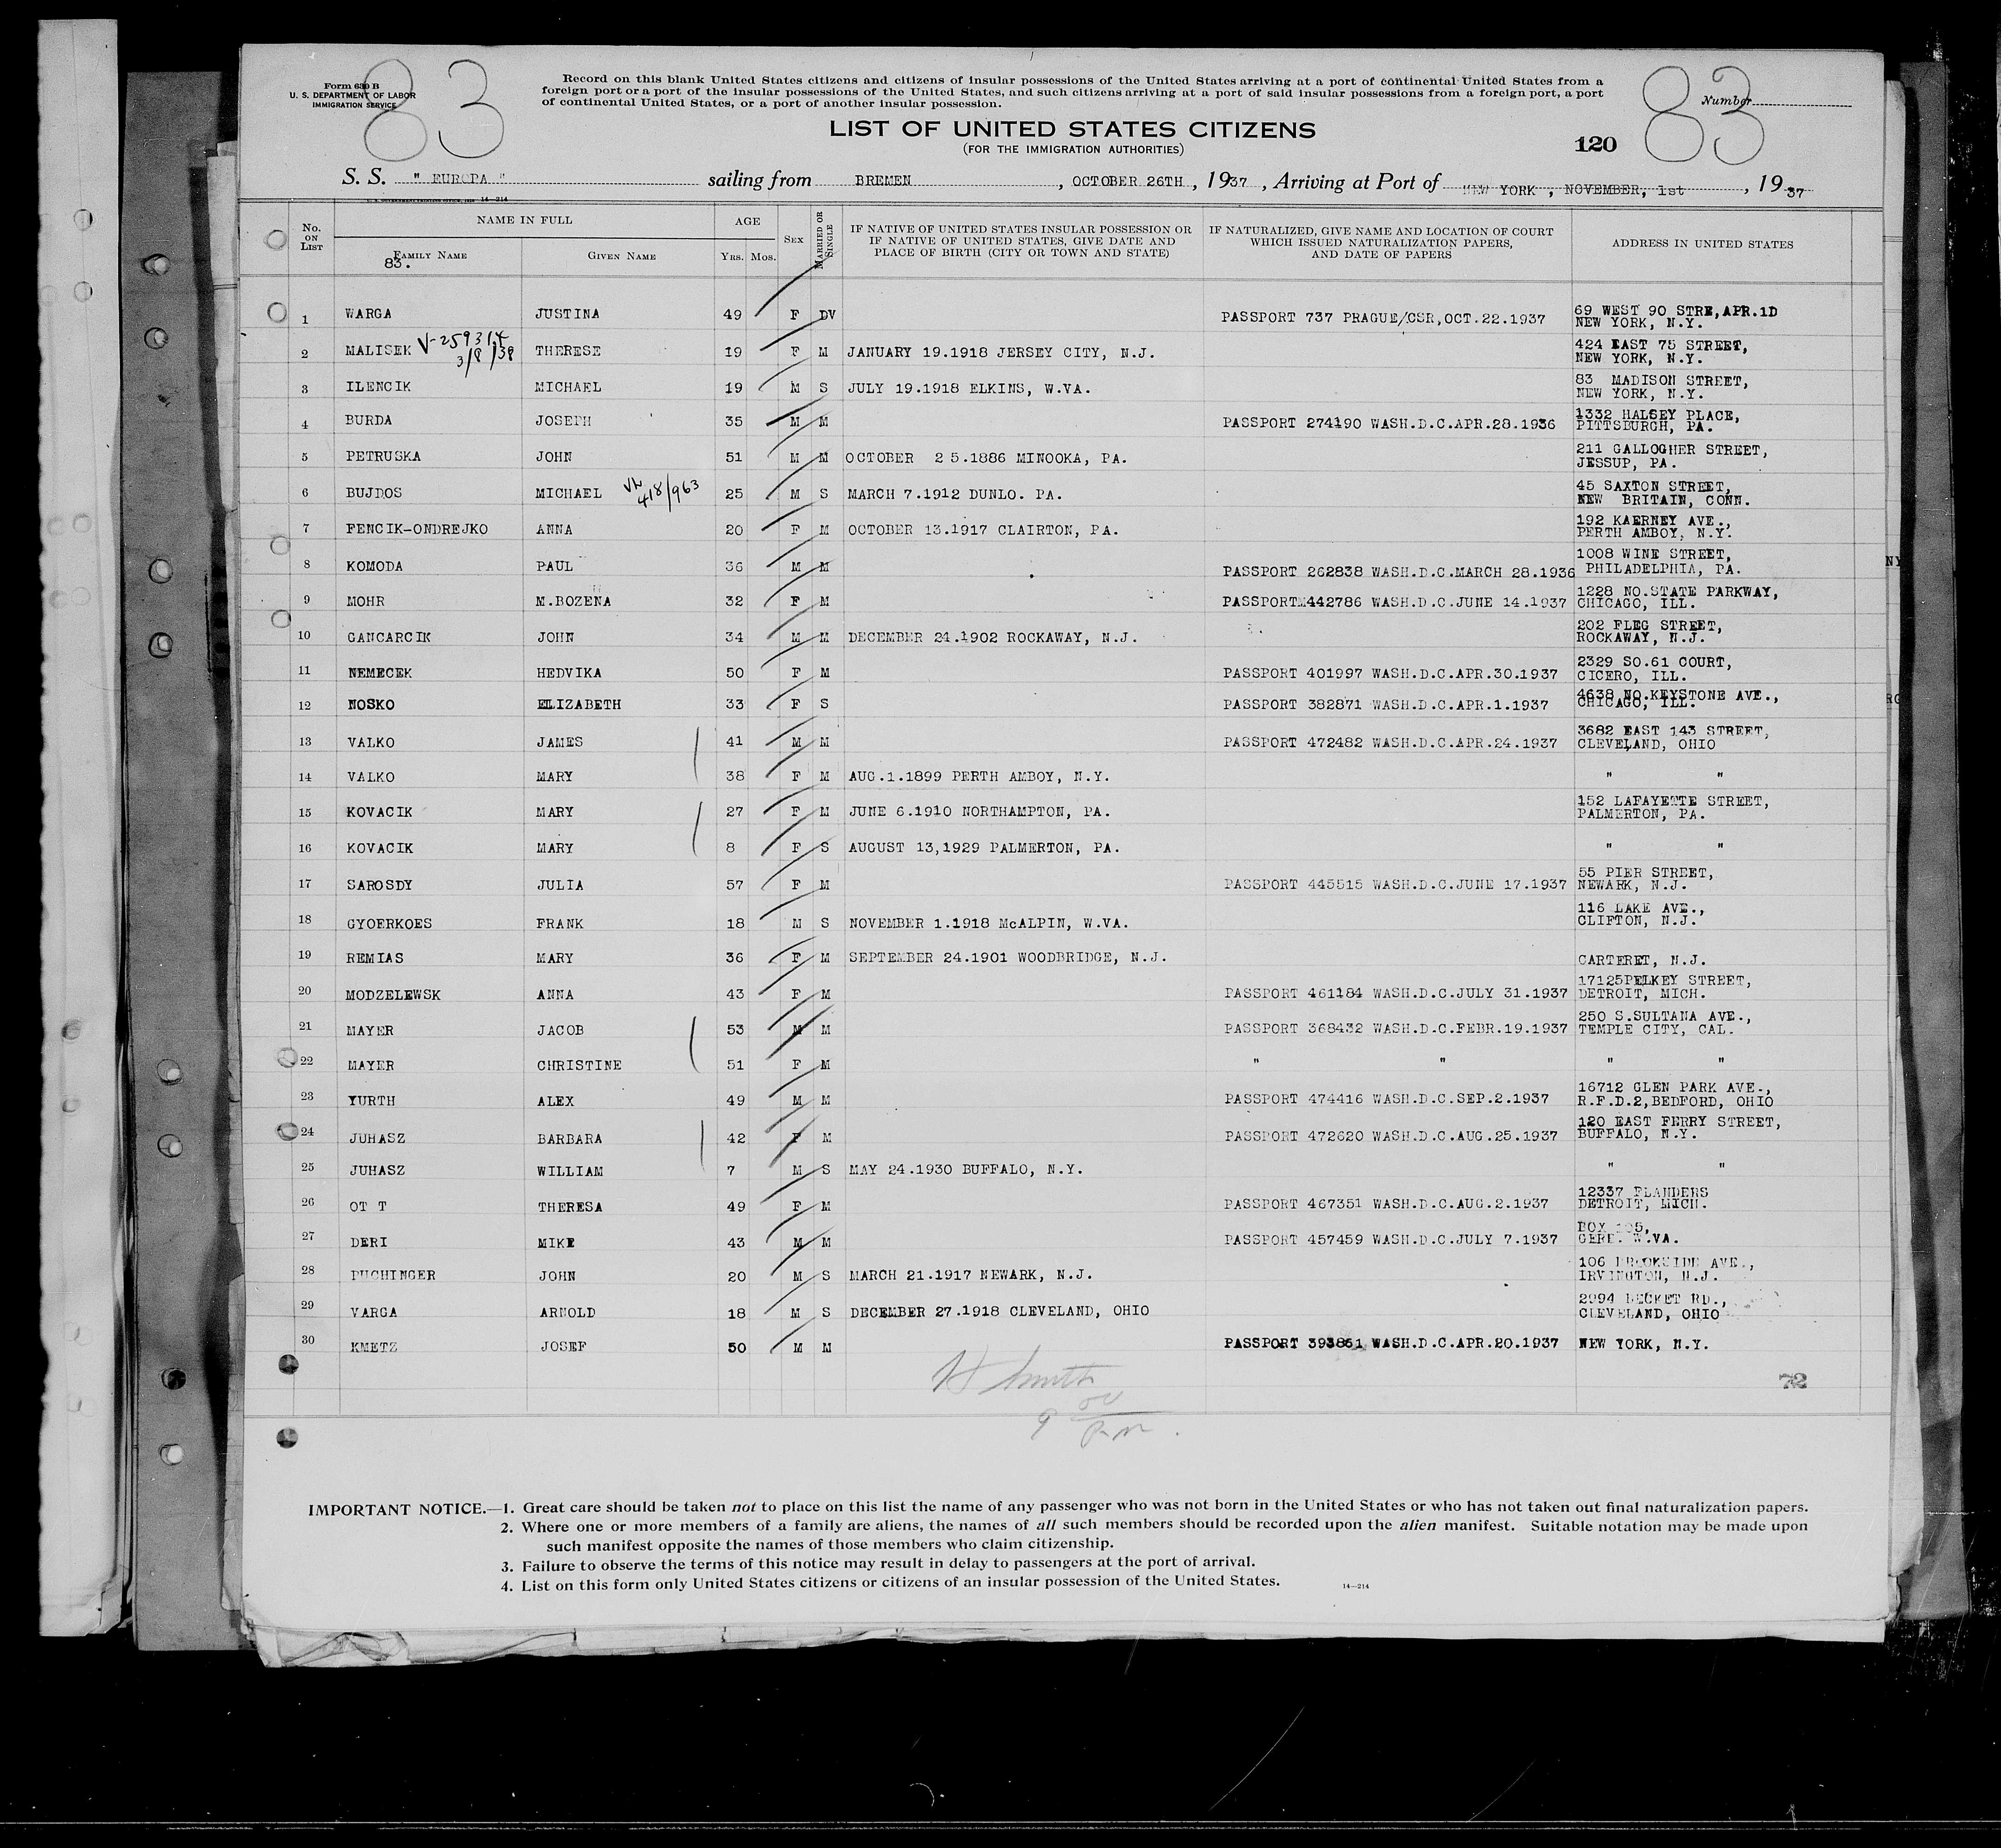 83 83
Form 630 B
U. S. DEPARTMENT OF LABOR
IMMIGRATION SERVICE
Record on this blank United States citizens and citizens of insular possessions of the United States arriving at a port of continental United States from a
foreign port or a port of the insular possessions of the United States, and such citizens arriving at a port of said insular possessions from a foreign port, a port
of continental United States, or a port of another insular possession.
Number
LIST OF UNITED STATES CITIZENS
(FOR THE IMMIGRATION AUTHORITIES)
120
S. S. " EUROPA " sailing from BREMEN , OCTOBER 26TH , 1937 , Arriving at Port of NEW YORK , NOVEMBER, 1st , 1937
14—214
No. ON LIST NAME IN FULL AGE SEX MARRIED OR SINGLE IF NATIVE OF UNITED STATES INSULAR POSSESSION OR IF NATIVE OF UNITED STATES, GIVE DATE AND PLACE OF BIRTH (CITY OR TOWN AND STATE) IF NATURALIZED, GIVE NAME AND LOCATION OF COURT WHICH ISSUED NATURALIZATION PAPERS, AND DATE OF PAPERS ADDRESS IN UNITED STATES
FAMILY NAME GIVEN NAME YRS. MOS.
83.
1 WARGA JUSTINA 49 F DV PASSPORT 737 PRAGUE/CSR,OCT.22.1937 69 WEST 90 STRE,APR.1D
NEW YORK, N.Y.
2 MALISEK V-259314 3/8/38 THERESE 19 F M JANUARY 19.1918 JERSEY CITY, N.J. 424 EAST 75 STREET,
NEW YORK, N.Y.
3 ILENCIK MICHAEL 19 M S JULY 19.1918 ELKINS, W.VA. 83 MADISON STREET,
NEW YORK, N.Y.
4 BURDA JOSEPH 35 M M PASSPORT 274190 WASH.D.C.APR.28.1936 1332 HALSEY PLACE,
PITTSBURGH, PA.
5 PETRUSKA JOHN 51 M M OCTOBER 2 5.1886 MINOOKA, PA. 211 GALLOGHER STREET,
JESSUP, PA.
6 BUJDOS MICHAEL 418/963 25 M S MARCH 7.1912 DUNLO. PA. 45 SAXTON STREET,
NEW BRITAIN, CONN.
7 FENCIK-ONDREJKO ANNA 20 F M OCTOBER 13.1917 CLAIRTON, PA. 192 KAERNEY AVE.,
PERTH AMBOY, N.Y.
8 KOMODA PAUL 36 M M PASSPORT 262838 WASH.D.C.MARCH 28.1936 1008 WINE STREET,
PHILADELPHIA, PA.
9 MOHR M.BOZENA 32 F M PASSPORT 442786 WASH.D.C.JUNE 14.1937 1228 NO.STATE PARKWAY,
CHICAGO, ILL.
10 GANCARCIK JOHN 34 M M DECEMBER 24.1902 ROCKAWAY, N.J. 202 FLEG STREET,
ROCKAWAY, N.J.
11 NEMECEK HEDVIKA 50 F M PASSPORT 401997 WASH.D.C.APR.30.1937 2329 SO.61 COURT,
CICERO, ILL.
12 NOSKO ELIZABETH 33 F S PASSPORT 382871 WASH.D.C.APR.1.1937 4638 NO.KEYSTONE AVE.,
CHICAGO, ILL.
13 VALKO JAMES 41 M M PASSPORT 472482 WASH.D.C.APR.24.1937 3682 EAST 143 STREET,
CLEVELAND, OHIO
14 VALKO MARY 38 F M AUG.1.1899 PERTH AMBOY, N.Y. " "
15 KOVACIK MARY 27 F M JUNE 6.1910 NORTHAMPTON, PA. 152 LAFAYETTE STREET,
PALMERTON, PA.
16 KOVACIK MARY 8 F S AUGUST 13,1929 PALMERTON, PA. " "
17 SAROSDY JULIA 57 F M PASSPORT 445515 WASH.D.C.JUNE 17.1937 55 PIER STREET,
NEWARK, N.J.
18 GYOERKOES FRANK 18 M S NOVEMBER 1.1918 McALPIN, W.VA. 116 LAKE AVE.,
CLIFTON, N.J.
19 REMIAS MARY 36 F M SEPTEMBER 24.1901 WOODBRIDGE, N.J. CARTERET, N.J.
20 MODZELEWSK ANNA 43 F M PASSPORT 461184 WASH.D.C.JULY 31.1937 17125PELKEY STREET,
DETROIT, MICH.
21 MAYER JACOB 53 M M PASSPORT 368432 WASH.D.C.FEBR.19.1937 250 S.SULTANA AVE.,
TEMPLE CITY, CAL.
22 MAYER CHRISTINE 51 F M " " " "
23 YURTH ALEX 49 M M PASSPORT 474416 WASH.D.C.SEP.2.1937 16712 GLEN PARK AVE.,
R.F.D.2,BEDFORD, OHIO
24 JUHASZ BARBARA 42 F M PASSPORT 472620 WASH.D.C.AUG.25.1937 120 EAST FERRY STREET,
BUFFALO, N.Y.
25 JUHASZ WILLIAM 7 M S MAY 24.1930 BUFFALO, N.Y. " "
26 OT T THERESA 49 F M PASSPORT 467351 WASH.D.C.AUG.2.1937 12337 FLANDERS
DETROIT, MICH.
27 DERI MIKE 43 M M PASSPORT 457459 WASH.D.C.JULY 7.1937 BOX
W.VA.
28 PUCHINGER JOHN 20 M S MARCH 21.1917 NEWARK, N.J. 106 BROOKSIDE AVE.,
IRVINGTON, N.J.
29 VARGA ARNOLD 18 M S DECEMBER 27.1918 CLEVELAND, OHIO 2994 BECKET RD.,
CLEVELAND, OHIO
30 KMETZ JOSEF 50 M M PASSPORT 393851 WASH.D.C.APR.20.1937 NEW YORK, N.Y.
72
H Smith
9 00 P.M.
IMPORTANT NOTICE.—1. Great care should be taken not to place on this list the name of any passenger who was not born in the United States or who has not taken out final naturalization papers.
2. Where one or more members of a family are aliens, the names of all such members should be recorded upon the alien manifest. Suitable notation may be made upon
such manifest opposite the names of those members who claim citizenship.
3. Failure to observe the terms of this notice may result in delay to passengers at the port of arrival.
4. List on this form only United States citizens or citizens of an insular possession of the United States.
14—214